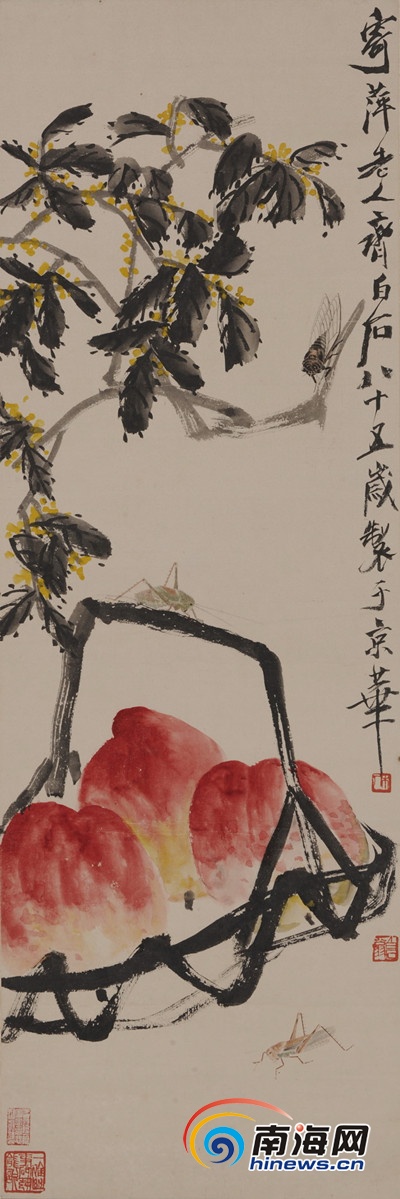 寄萍老人齊白石八十五歲製于京華
南海网
hinews.cn